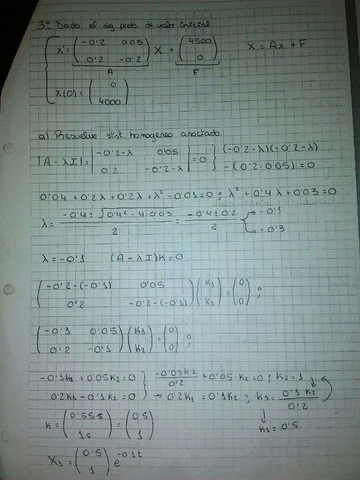 3º Dado el sig. prob. de valor inicial
X' = ( -0'2 0'05 ; 0'2 -0'2 ) X + ( 4500 ; 0 ) X = Ax + F
A F
X(0) = ( 0 ; 4000 )
a) Resuelve sist. homogeneo asociado.
|A-λI| = | -0'2-λ 0'05 ; 0'2 -0'2-λ | = 0 } (-0'2-λ)(-0'2-λ) -(0'2·0'05) = 0
0'04 + 0'2λ + 0'2λ + λ² - 0'01 = 0 ; λ² + 0'4λ + 0'03 = 0
λ = (-0'4 ± √(0'4² - 4·0'03)) / 2 = (-0'4 ± 0'2) / 2 -0'1 -0'3
λ = -0'1 (A-λI)K = 0
( -0'2-(-0'1) 0'05 ; 0'2 -0'2-(-0'1) ) ( k1 ; k2 ) = ( 0 ; 0 ) ;
( -0'1 0'05 ; 0'2 -0'1 ) ( k1 ; k2 ) = ( 0 ; 0 ) ;
-0'1k1 + 0'05k2 = 0 } + 0'05·k2 = 0 ; k2 = 1
0'2k1 - 0'1k2 = 0 → 0'2k1 = 0'1k2 ; k1 = 0'1k2 / 0'2
k = = ( 0'5 ; 1 ) k1 = 0'5
X1 = ( 0'5 ; 1 ) e^-0'1t